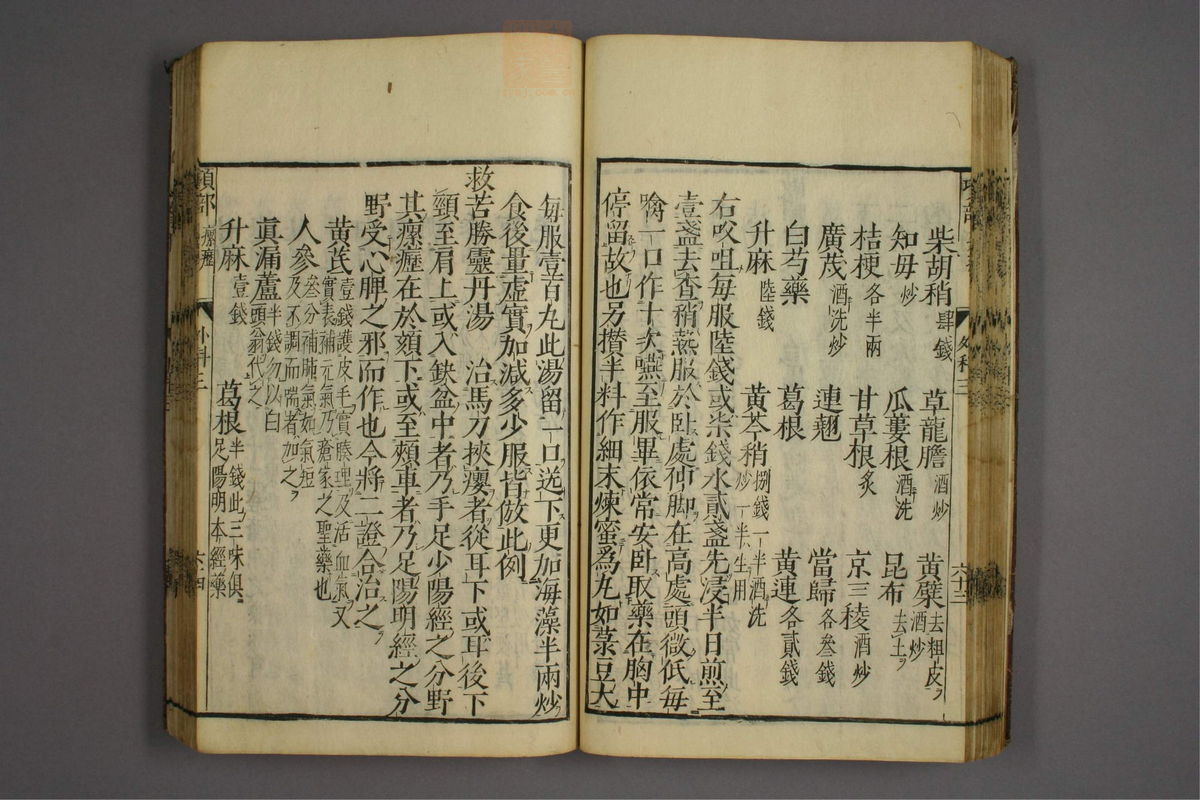 柴胡稍肆錢 草龍膽酒炒 黃蘗去粗皮酒炒
知毋炒 瓜蔞根酒洗 昆布去土
桔梗各半兩 甘草根炙 京三稜酒炒
廣茂酒洗炒 連翹 當歸各叁錢
白芍藥 葛根 黃連各貳錢
升麻陸錢 黃芩稍捌錢一半酒洗炒一半生用
右㕮咀每服陸錢或柒錢水貳盞先浸半日煎至
壹盞去查稍𤍠服於卧處伸脚在高處頭微低每
噙一口作十次嚥至服畢依常安卧取藥在胸中
停留故也另攢半料作細末煉蜜爲丸如菉豆大
每服壹百丸此湯留一口送下更加海藻半兩炒
食後量虛實加減多少服皆倣此例
救苦勝靈丹湯 治馬刀挾癭者從耳下或耳後下
頸至肩上或入鈌盆中者乃手足少陽經之分野
其瘰癧在於頦下或至頰車者乃足陽明經之分
野受心脾之邪而作也今將二證合治之
黃芪壹錢護皮毛實腠理及活血氣又實表補元氣乃瘡家之聖藥也
人參叁分補肺氣如氣短及不調而喘者加之
眞漏蘆半錢勿以白頭翁代之
升麻壹錢 葛根半錢此三味俱足陽明本經藥
頸部 瘰癧 外科三 六十四
外科三 六十三